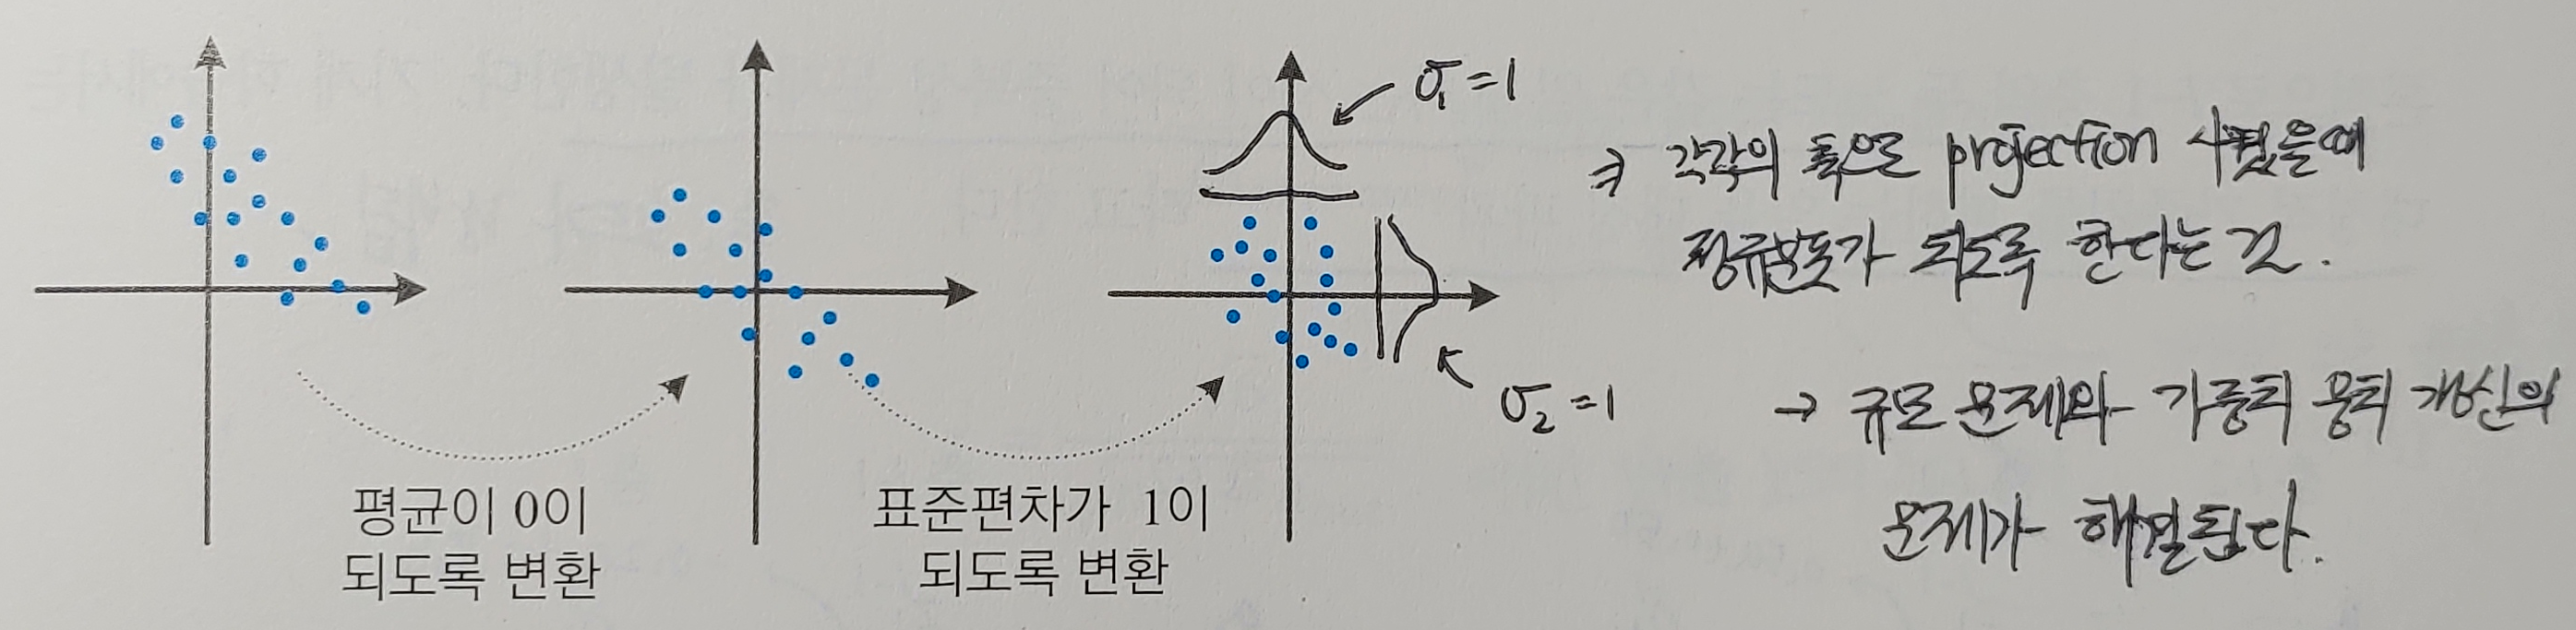 평균이 0이
되도록 변환
표준편차가 1이
되도록 변환
σ₁=1
σ₂=1
⇒ 각각의 축으로 projection 시켰을때
정규분포가 되도록 한다는 것.
→ 규모 문제와 가중치 뭉치 갱신의
문제가 해결된다.